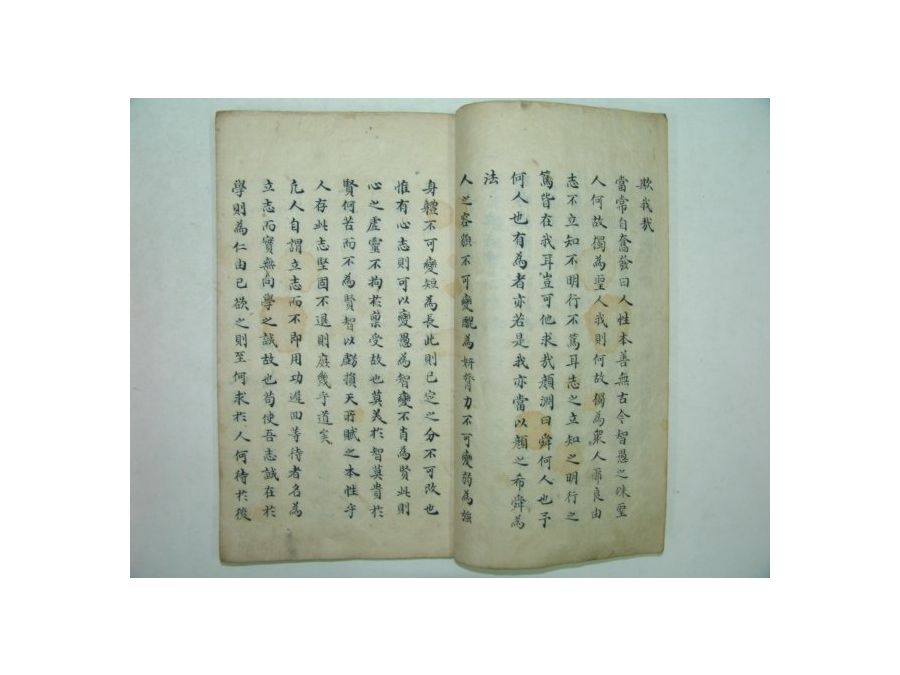 欺我哉
當常自奮發曰人性本善無古今智愚之殊聖
人何故獨為聖人我則何故獨為衆人耶良由
志不立知不明行不篤耳志之立知之明行之
篤皆在我耳豈可他求哉顔淵曰舜何人也予
何人也有為者亦若是我亦當以顔之希舜為
法
人之容貌不可變醜為姸膂力不可變弱為強
身軆不可變短為長此則已定之分不可改也
惟有心志則可以變愚為智變不肖為賢此則
心之虛靈不拘於稟受故也莫美於智莫貴於
賢何苦而不為賢智以虧損天所賦之本性乎
人存此志堅固不退則庶幾乎道矣
凡人自謂立志而不即用功遲回等待者名為
立志而實無向學之誠故也苟使吾志誠在於
學則為仁由己欲之則至何求於人何待於後